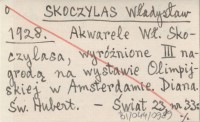 SKOCZYLAS Władysław
1928. Akwarele Wł. Sko-
czylasa, wyróżnione III na-
grodą na wystawie Olimpij-
skiej w Amsterdamie. Diana.
Św. Hubert. - Świat 23, nr 33: